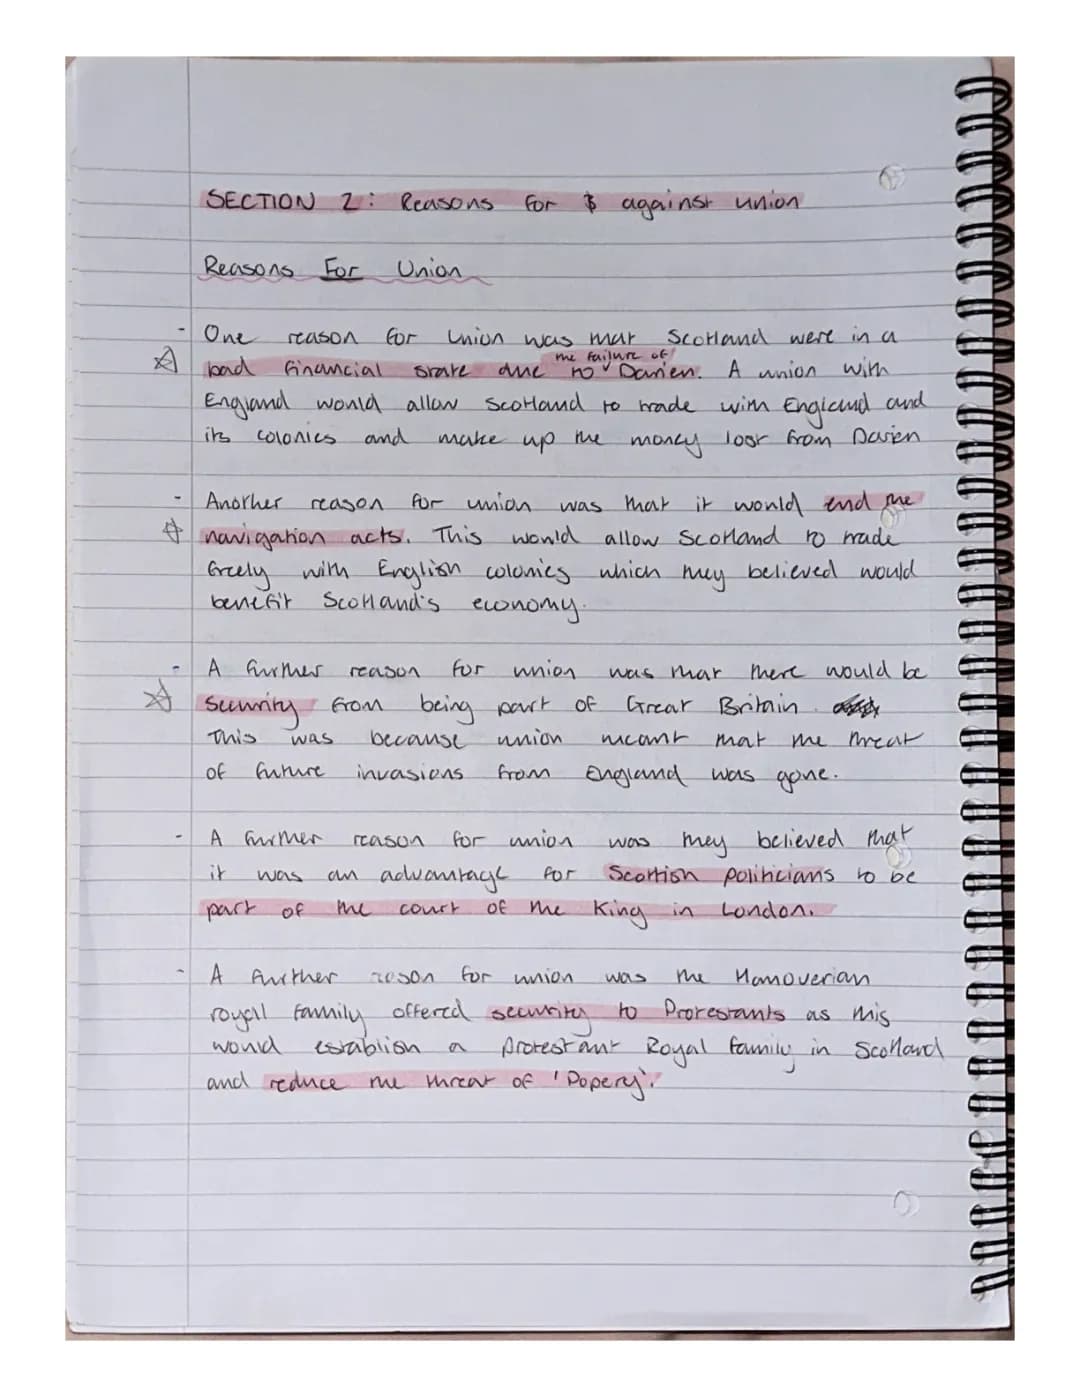 SECTION 2: Reasons for & against union
Reasons For Union
- One reason for union was that Scotland were in a
the failure of
bad financial state due to Darien. A union with
England would allow Scotland to trade with England and
its colonies and make up the money lost from Darien
- Another reason for union was that it would end the
navigation acts. This would allow Scotland to trade
freely with English colonies which they believed would
benefit Scotland's economy.
- A further reason for union was that there would be
security from being part of Great Britain.
This was because union meant that the threat
of future invasions from England was gone.
- A further reason for union was they believed that
it was an advantage for Scottish politicians to be
part of the court of the King in London.
- A further reason for union was the Hanoverian
royal family offered security to Protestants as this
would establish a protestant Royal family in Scotland
and reduce the threat of 'Popery'.